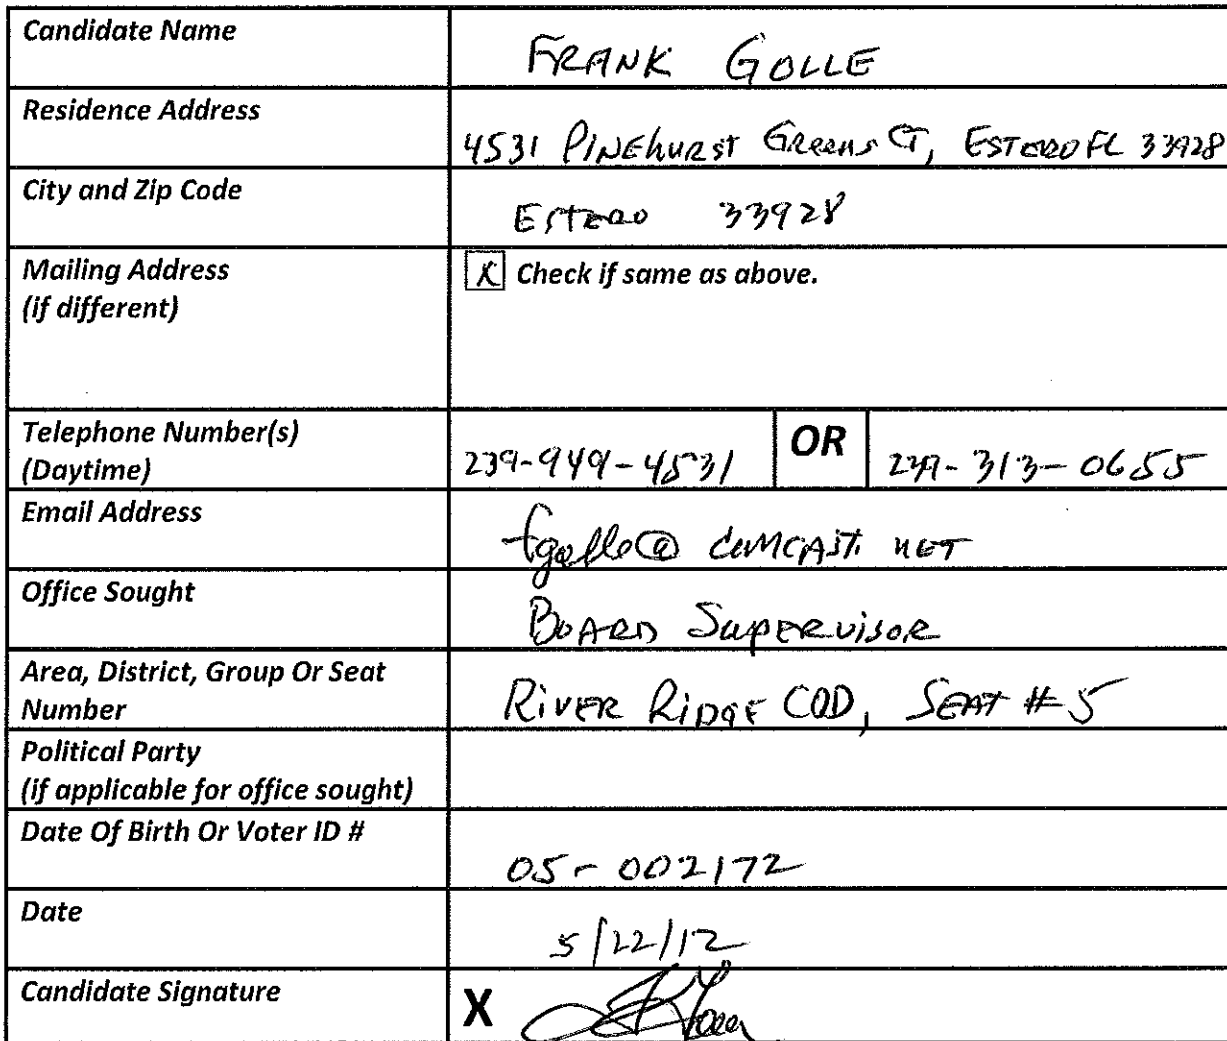 Candidate Name FRANK GOLLE
Residence Address 4531 PINEhURST GREENS CT, ESTERO FL 33928
City and Zip Code ESTERO 33928
Mailing Address
(if different)
X Check if same as above.
Telephone Number(s)
(Daytime)
239-949-4531 OR 239-313-0655
Email Address fgolle@comcast.net
Office Sought BOARD SUPERVISOR
Area, District, Group Or Seat
Number
RIVER RIDGE CDD, SEAT #5
Political Party
(if applicable for office sought)
Date Of Birth Or Voter ID # 05-002172
Date 5/22/12
Candidate Signature X